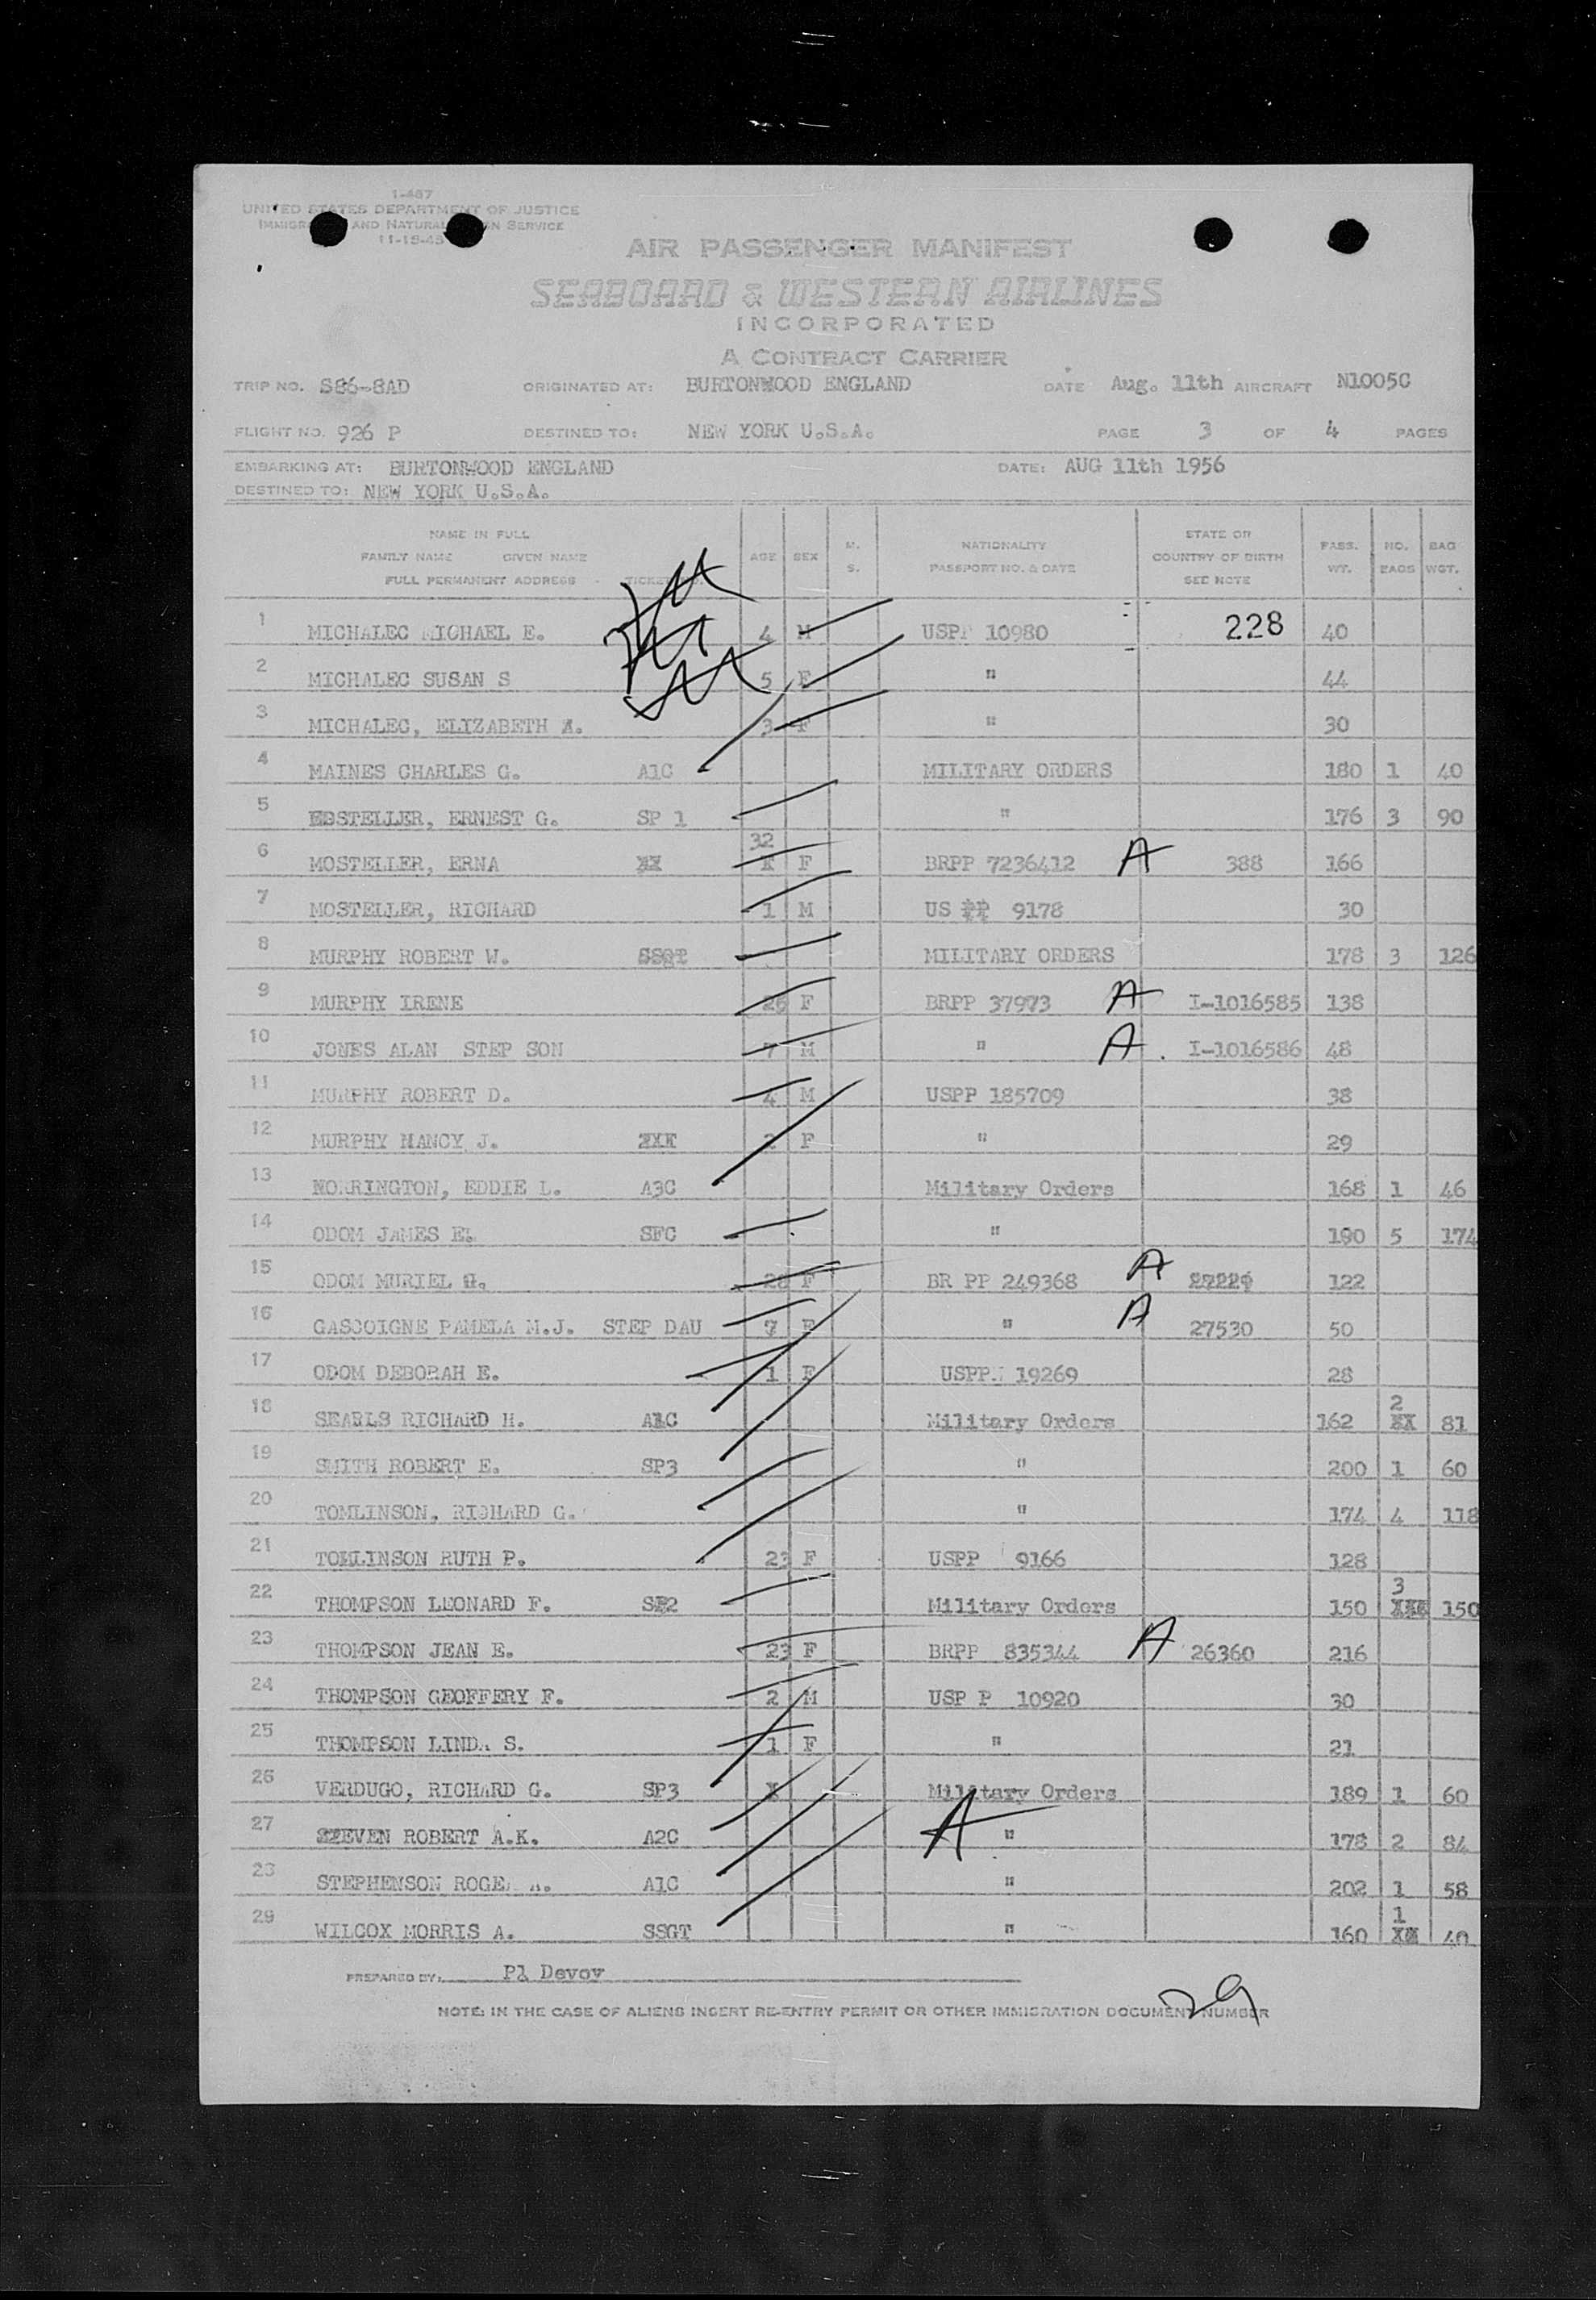 1-467
UNITED STATES DEPARTMENT OF JUSTICE
AND
SERVICE
11-15-45
AIR PASSENGER MANIFEST
SEABOARD & WESTERN AIRLINES
INCORPORATED
A CONTRACT CARRIER
TRIP NO. S86-8AD ORIGINATED AT: BURTONWOOD ENGLAND DATE Aug. 11th AIRCRAFT N1005C
FLIGHT NO. 926 P DESTINED TO: NEW YORK U.S.A. PAGE 3 OF 4 PAGES
EMBARKING AT: BURTONWOOD ENGLAND DATE: AUG 11th 1956
DESTINED TO: NEW YORK U.S.A.
NAME IN FULL
FAMILY NAME GIVEN NAME
FULL PERMANENT ADDRESS
AGE SEX M. S. NATIONALITY PASSPORT NO. & DATE STATE OR COUNTRY OF BIRTH SEE NOTE PASS. WT. NO. BAGS BAG WGT.
1 MICHALEC MICHAEL E. 4 M USPP 10980 228 40
2 MICHALEC SUSAN S 5 F " 44
3 MICHALEC, ELIZABETH A. 3 F " 30
4 MAINES CHARLES G. A1C MILITARY ORDERS 180 1 40
5 ERNEST G. SP 1 " 176 3 90
6 MOSTELLER, ERNA 32 F BRPP 7236412 A 388 166
7 MOSTELLER, RICHARD 1 M US PP 9178 30
8 MURPHY ROBERT W. SSGT MILITARY ORDERS 178 3 126
9 MURPHY IRENE 26 F BRPP 37973 A I-1016585 138
10 JONES ALAN STEP SON 7 M " A I-1016586 48
11 MURPHY ROBERT D. 4 M USPP 185709 38
12 MURPHY NANCY J. 2 F " 29
13 NORRINGTON, EDDIE L. A3C Military Orders 168 1 46
14 ODOM JAMES E. SFC " 190 5 174
15 ODOM MURIEL 28 F BR PP 249368 A 122
16 GASCOIGNE PAMELA M.J. STEP DAU 7 F " A 27530 50
17 ODOM DEBORAH E. 1 F USPP 19269 28
18 SEARLS RICHARD H. A1C Military Orders 162 2 81
19 SMITH ROBERT E. SP3 " 200 1 60
20 TOMLINSON, RICHARD G. " 174 4 118
21 TOMLINSON RUTH P. 23 F USPP 9166 128
22 THOMPSON LEONARD F. SP2 Military Orders 150 3 150
23 THOMPSON JEAN E. 23 F BRPP 835344 A 26360 216
24 THOMPSON GEOFFERY F. 2 M USP P 10920 30
25 THOMPSON LINDA S. 1 F " 21
26 VERDUGO, RICHARD G. SP3 X Military Orders 189 1 60
27 ROBERT A.K. A2C A " 178 2 84
28 STEPHENSON ROGER A. A1C " 202 1 58
29 WILCOX MORRIS A. SSGT " 160 1 40
PREPARED BY: Pl Devoy
29
NOTE: IN THE CASE OF ALIENS INSERT RE-ENTRY PERMIT OR OTHER IMMIGRATION DOCUMENT NUMBER